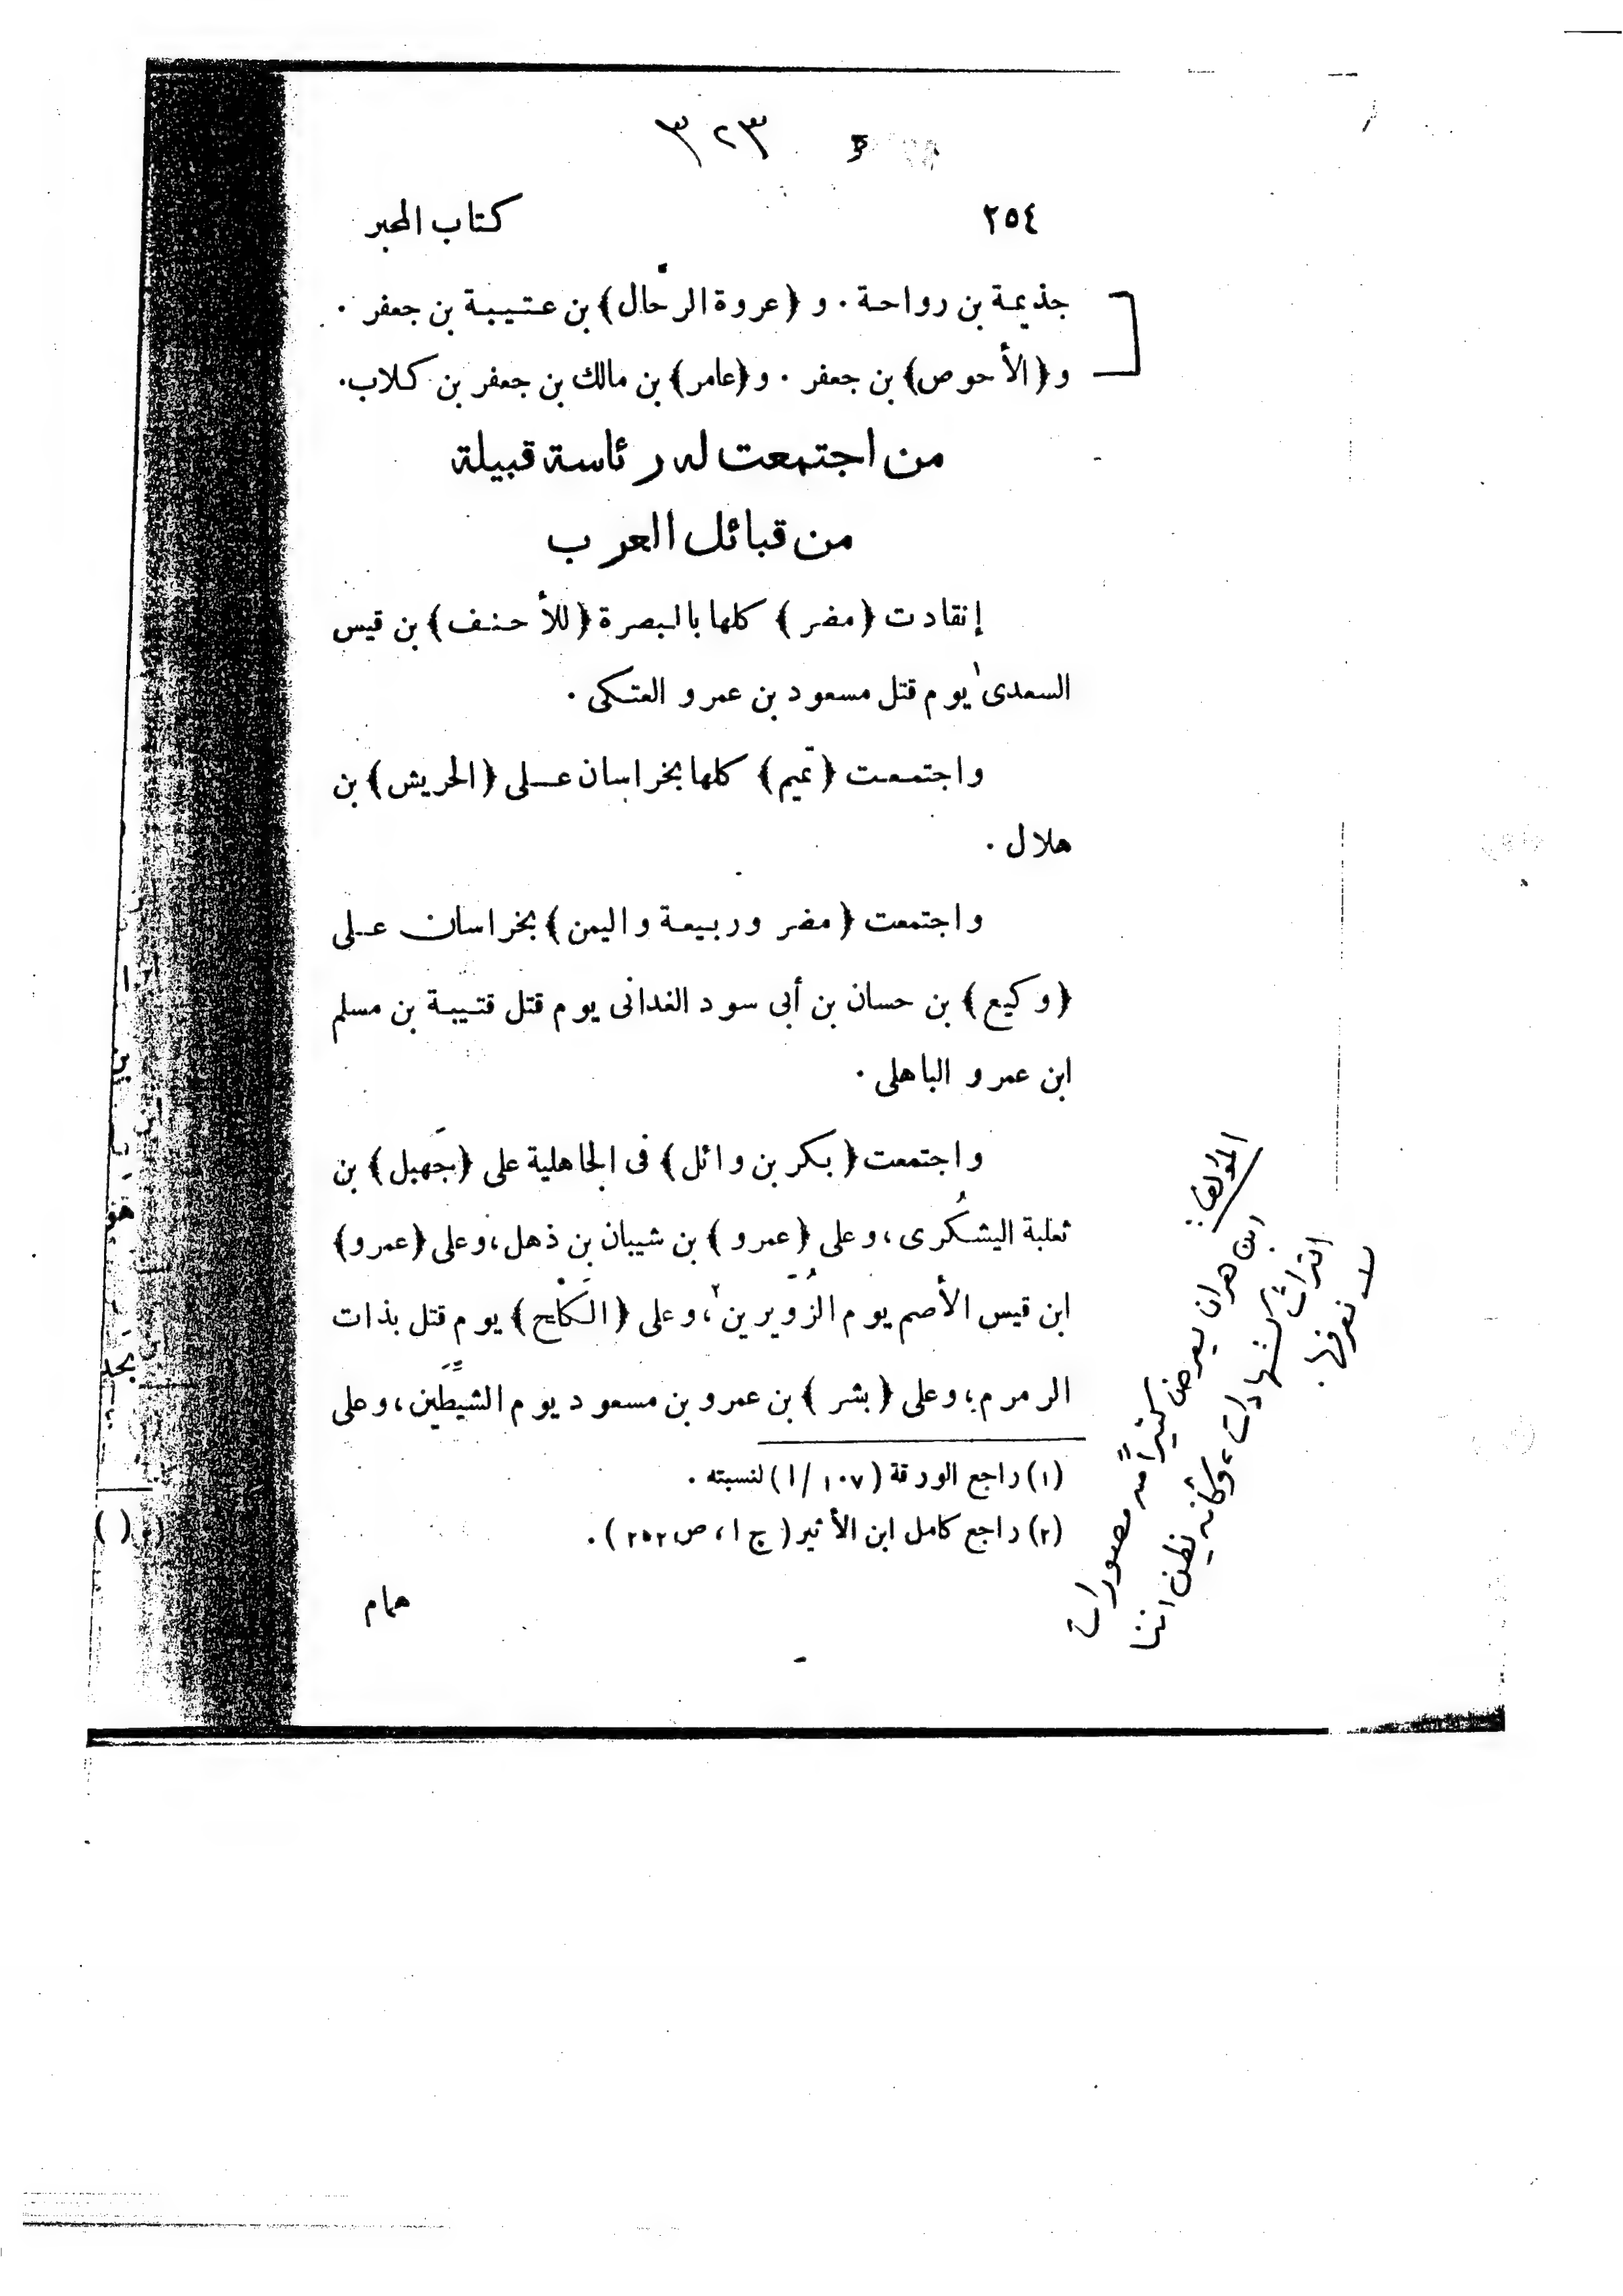 ٣٢٣
٢٥٤
كتاب المحبر
جذيمة بن رواحة . و (عروة الرحّال) بن عتيبة بن جعفر .
و (الأحوص) بن جعفر . و (عامر) بن مالك بن جعفر بن كلاب.
من اجتمعت له رئاسة قبيلة
من قبائل العرب
إنقادت (مضر) كلها بالبصرة (للأحنف) بن قيس
السعدى١ يوم قتل مسعود بن عمرو العتكى .
واجتمعت (تميم) كلها بخراسان على (الحريش) بن
هلال .
واجتمعت (مضر وربيعة واليمن) بخراسان على
(وكيع) بن حسان بن أبى سود الغدانى يوم قتل قتيبة بن مسلم
ابن عمرو الباهلى .
واجتمعت (بكر بن وائل) فى الجاهلية على (جَهبل) بن
ثعلبة اليشكُرى، وعلى (عمرو) بن شيبان بن ذهل، وعلى (عمرو)
ابن قيس الأصم يوم الزُوَيرين٢، وعلى (الكَلْح) يوم قتل بذات
الرمرم؛ وعلى (بشر) بن عمرو بن مسعود يوم الشيّطَين، وعلى
(١) راجع الورقة (١٠٧/ا) لنسبته .
(٢) راجع كامل ابن الأثير (ج ١، ص ٢٥٢) .
همام
المؤلف:
ابن هران يعرض كثيراً من مصورات
التراث كشهادات، وكأنه يظن اننا
لا نعرفها.